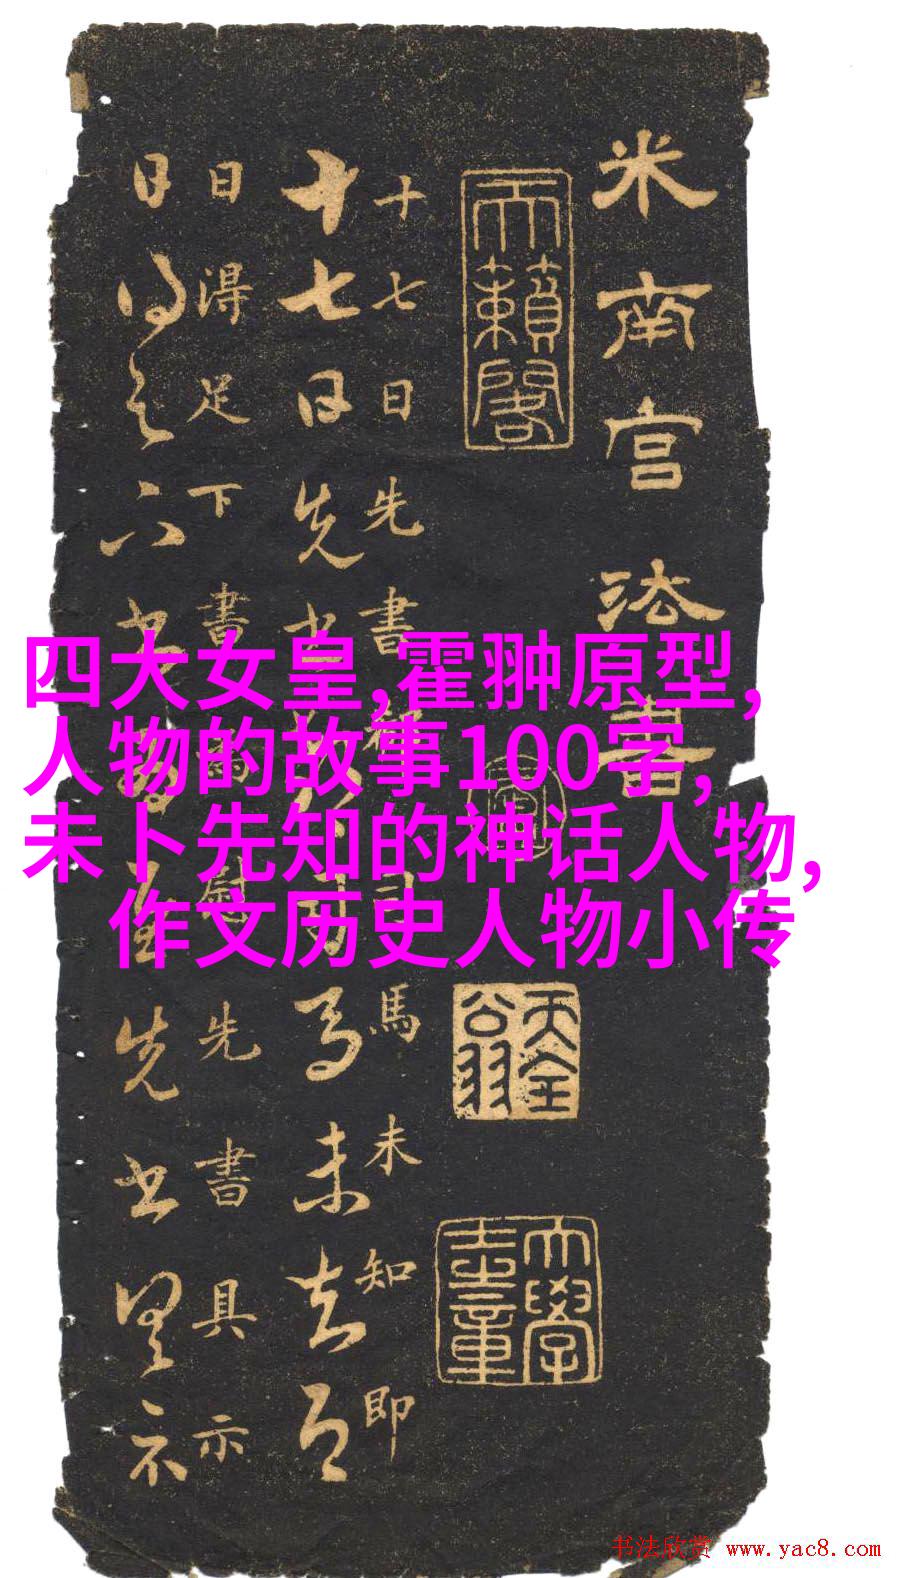 米南宮法書
天籟閣
十七日先書
十七日先書
司馬未知即
馬未去即
日得足下書
日得足下書
慰先書具示
為慰先書具示
四大女皇,霍翀原型,
人物的故事100字,
未卜先知的神话人物,
作文历史人物小传
书法欣赏 www.yac8.com